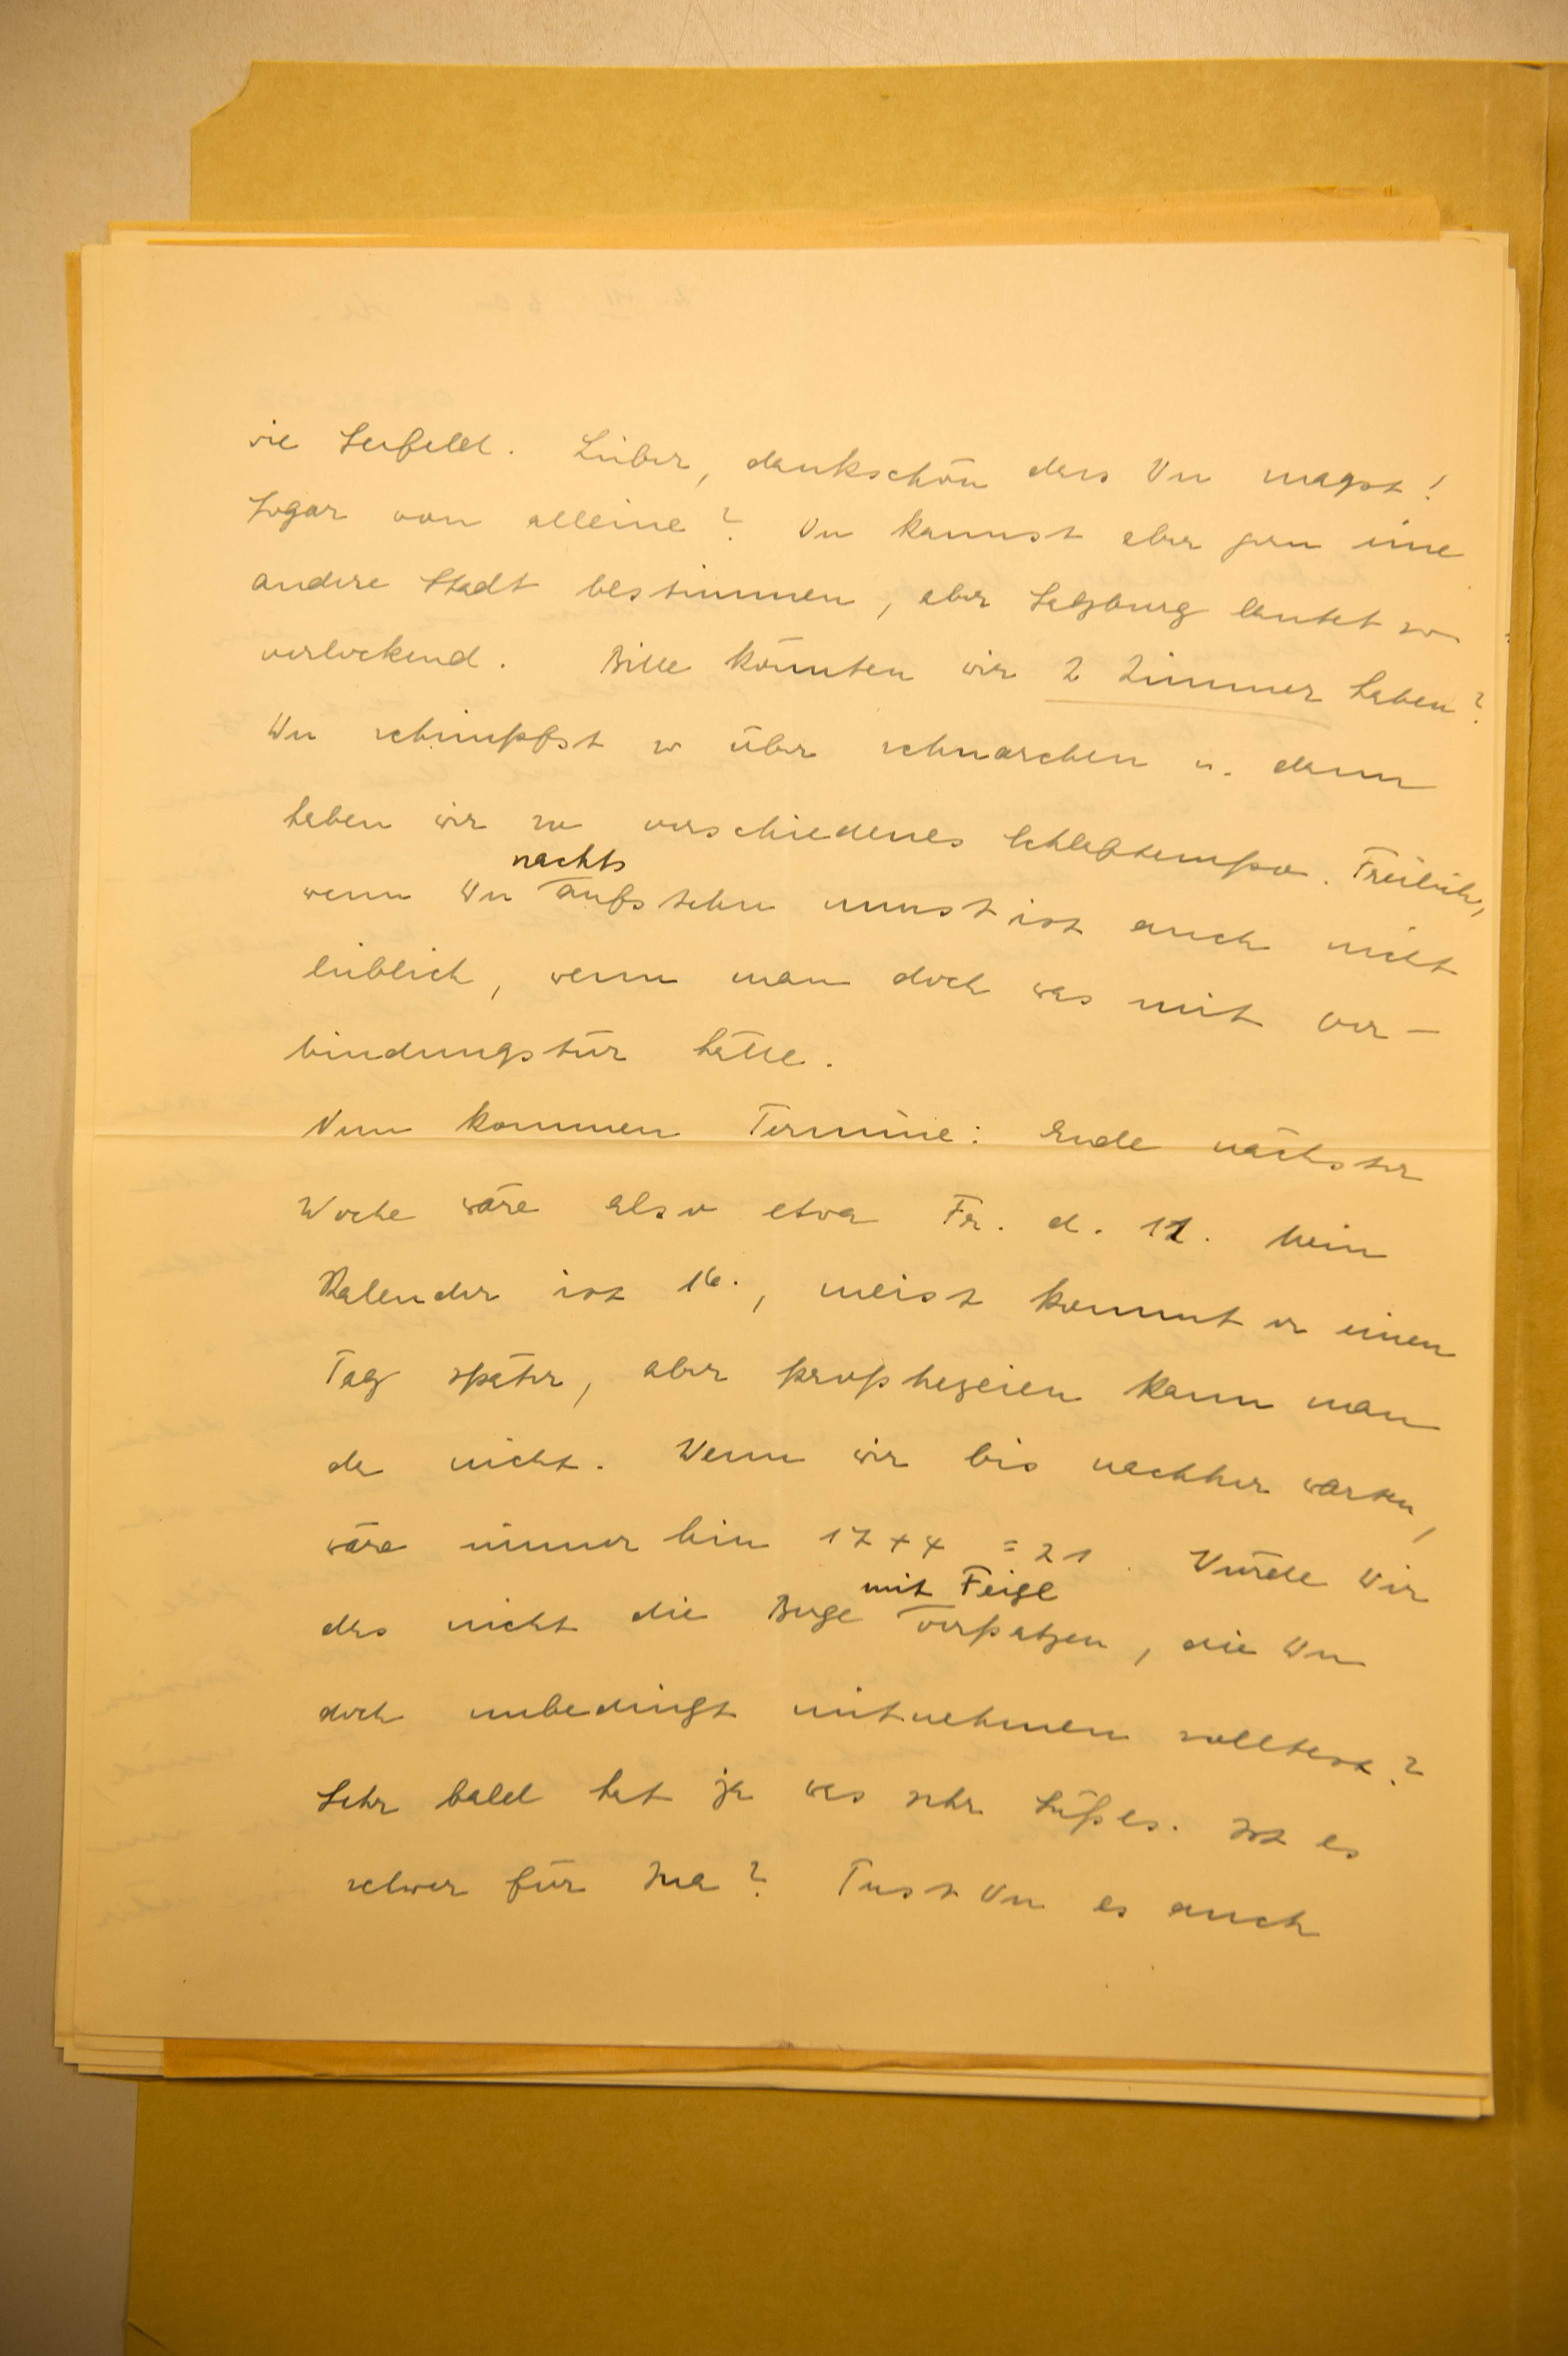 wie Seefeld. Lieber, dankschön dass Du magst!
Sogar von alleine? Du kannst aber gern eine
andere Stadt bestimmen, aber Salzburg lautet so
verlockend. Bitte könnten wir 2 Zimmer haben?
Du schimpfst so über schnarchen u. dann
haben wir so verschiedenes Schlaftempo. Freilich,
nachts
wenn Du aufstehn musst ist auch nicht
lieblich, wenn man doch was mit Ver-
bindungstür hätte.
Nun kommen Termine: Ende nächster
Woche wäre also etwa Fr. d. 11. Mein
Kalender ist 16., meist kommt er einen
Tag später, aber prophezeien kann man
da nicht. Wenn wir bis nachher warten,
wäre immerhin 17 + 4 = 21. Würde Dir
mit Feigl
das nicht die Berge verpatzen, die Du
doch unbedingt mitnehmen solltest?
Sehr bald hat ja was sehr Süßes. Ist es
schwer für Ina? Tust Du es auch